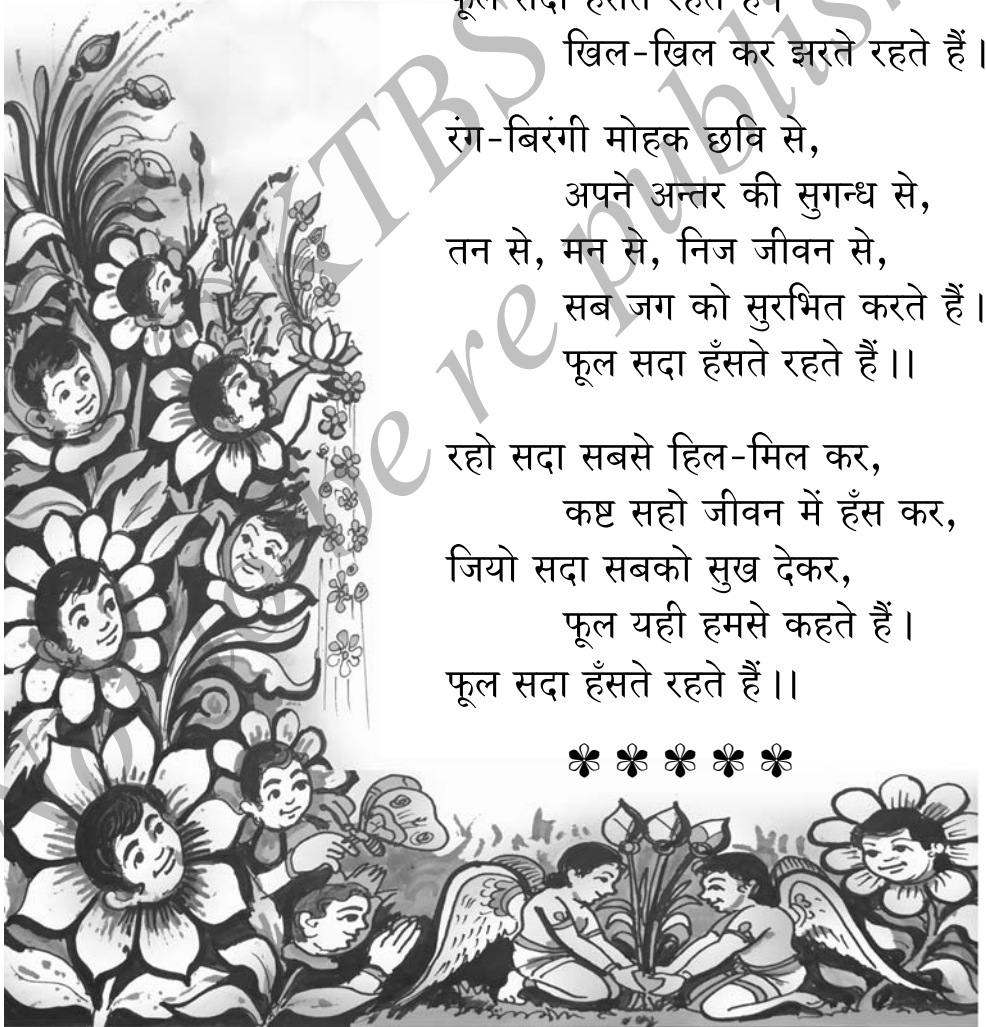 फूल सदा हँसते रहते हैं।
खिल-खिल कर झरते रहते हैं।
रंग-बिरंगी मोहक छवि से,
अपने अन्तर की सुगन्ध से,
तन से, मन से, निज जीवन से,
सब जग को सुरभित करते हैं।
फूल सदा हँसते रहते हैं।।
रहो सदा सबसे हिल-मिल कर,
कष्ट सहो जीवन में हँस कर,
जियो सदा सबको सुख देकर,
फूल यही हमसे कहते हैं।
फूल सदा हँसते रहते हैं।।
KTBS
be republish